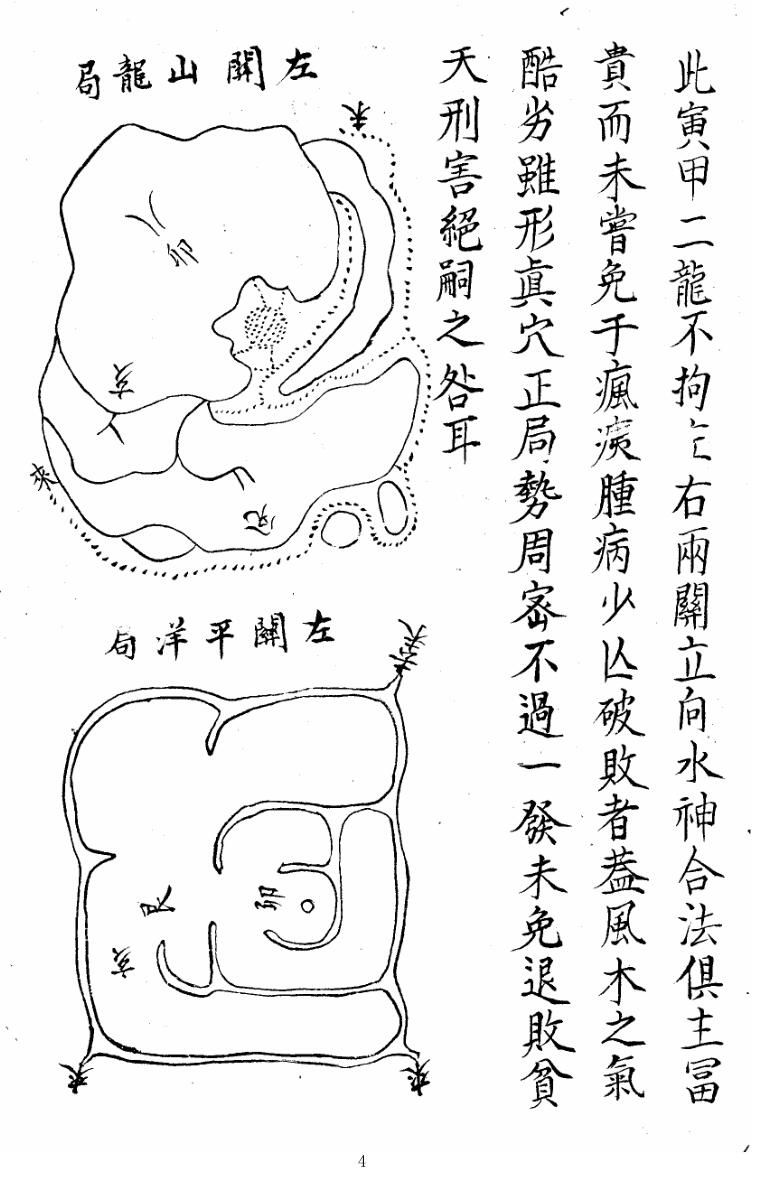 此寅甲二龍不拘右兩關立向水神合法俱主冨
貴而未嘗免于瘋痍腫病少亾破敗者葢風木之氣
酷劣雖形眞穴正局勢周宻不過一發未免退敗貧
天刑害絕嗣之咎耳
左關山龍局
未
卯
亥
來
左關平洋局
艮
卯
亥
來
來
4